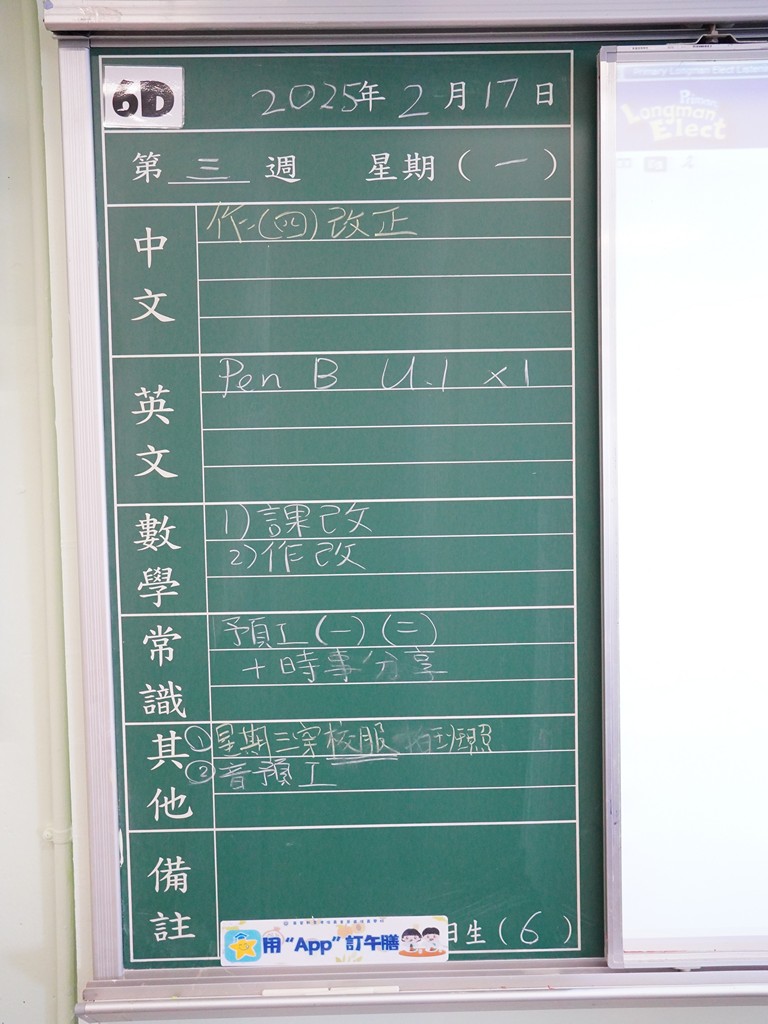 6D
2025年2月17日
第三週 星期(一)
中文
作(四)改正
英文
Pen B U.1 x1
數學
1)課改
2)作改
常識
預工(一)(二)
+時事分享
其他
①星期三穿校服拍班照
②音預工
備註
用“App”訂午膳
日生(6)
Primary Longman Elect
Primary
Longman
Elect